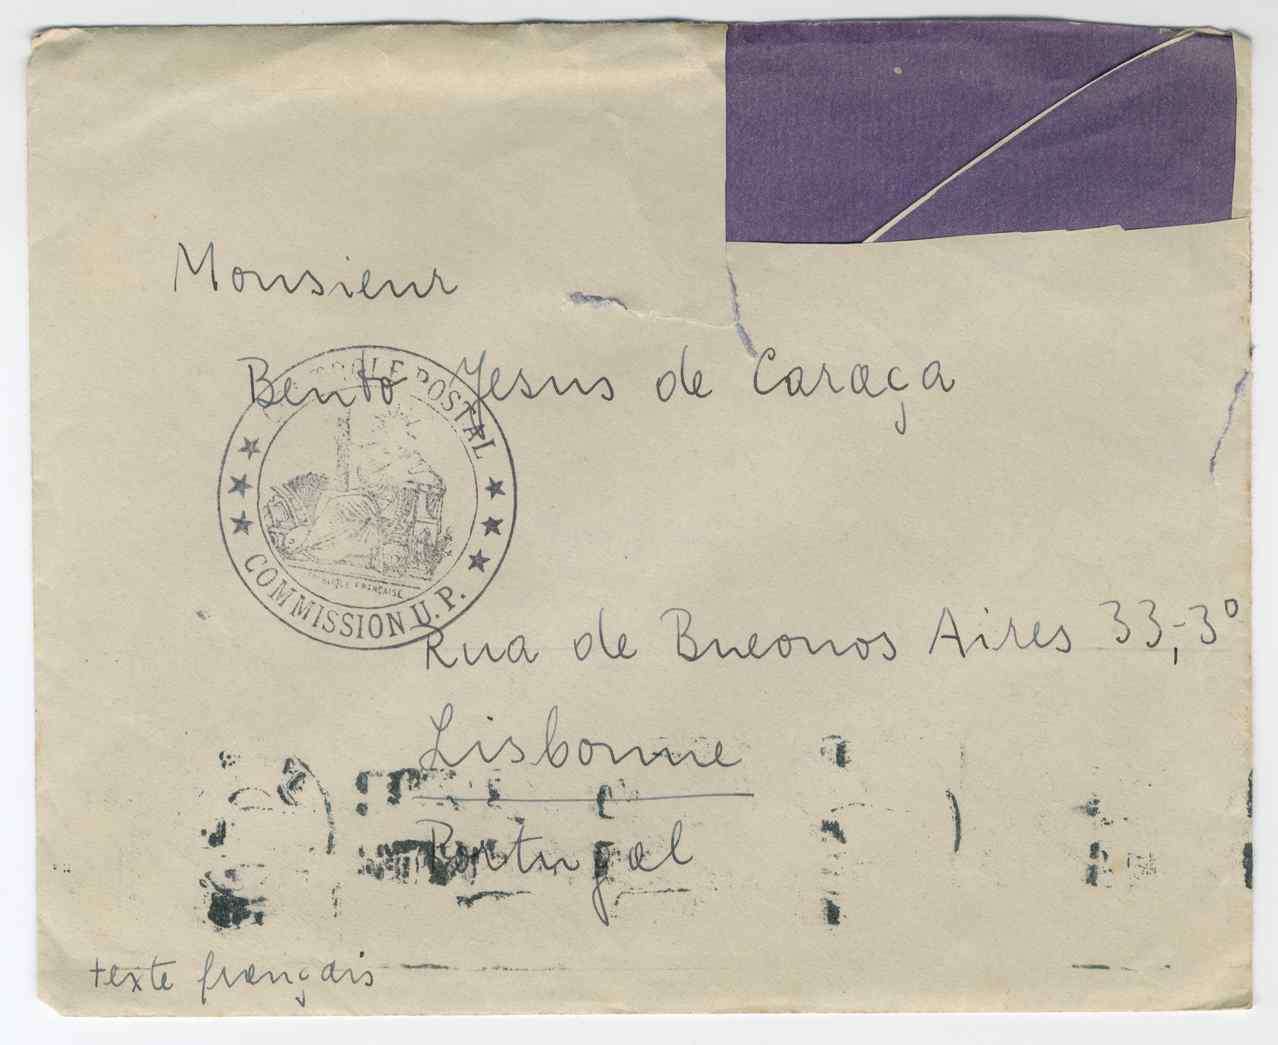 Monsieur
Bento Jesus de Caraça
CONTROLE POSTAL
COMMISSION U.P.
FRANÇAISE
Rua de Bueonos Aires 33,-3º
Lisbonne
Portugal
texte français